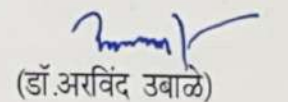 (डॉ.अरविंद उबाळे)